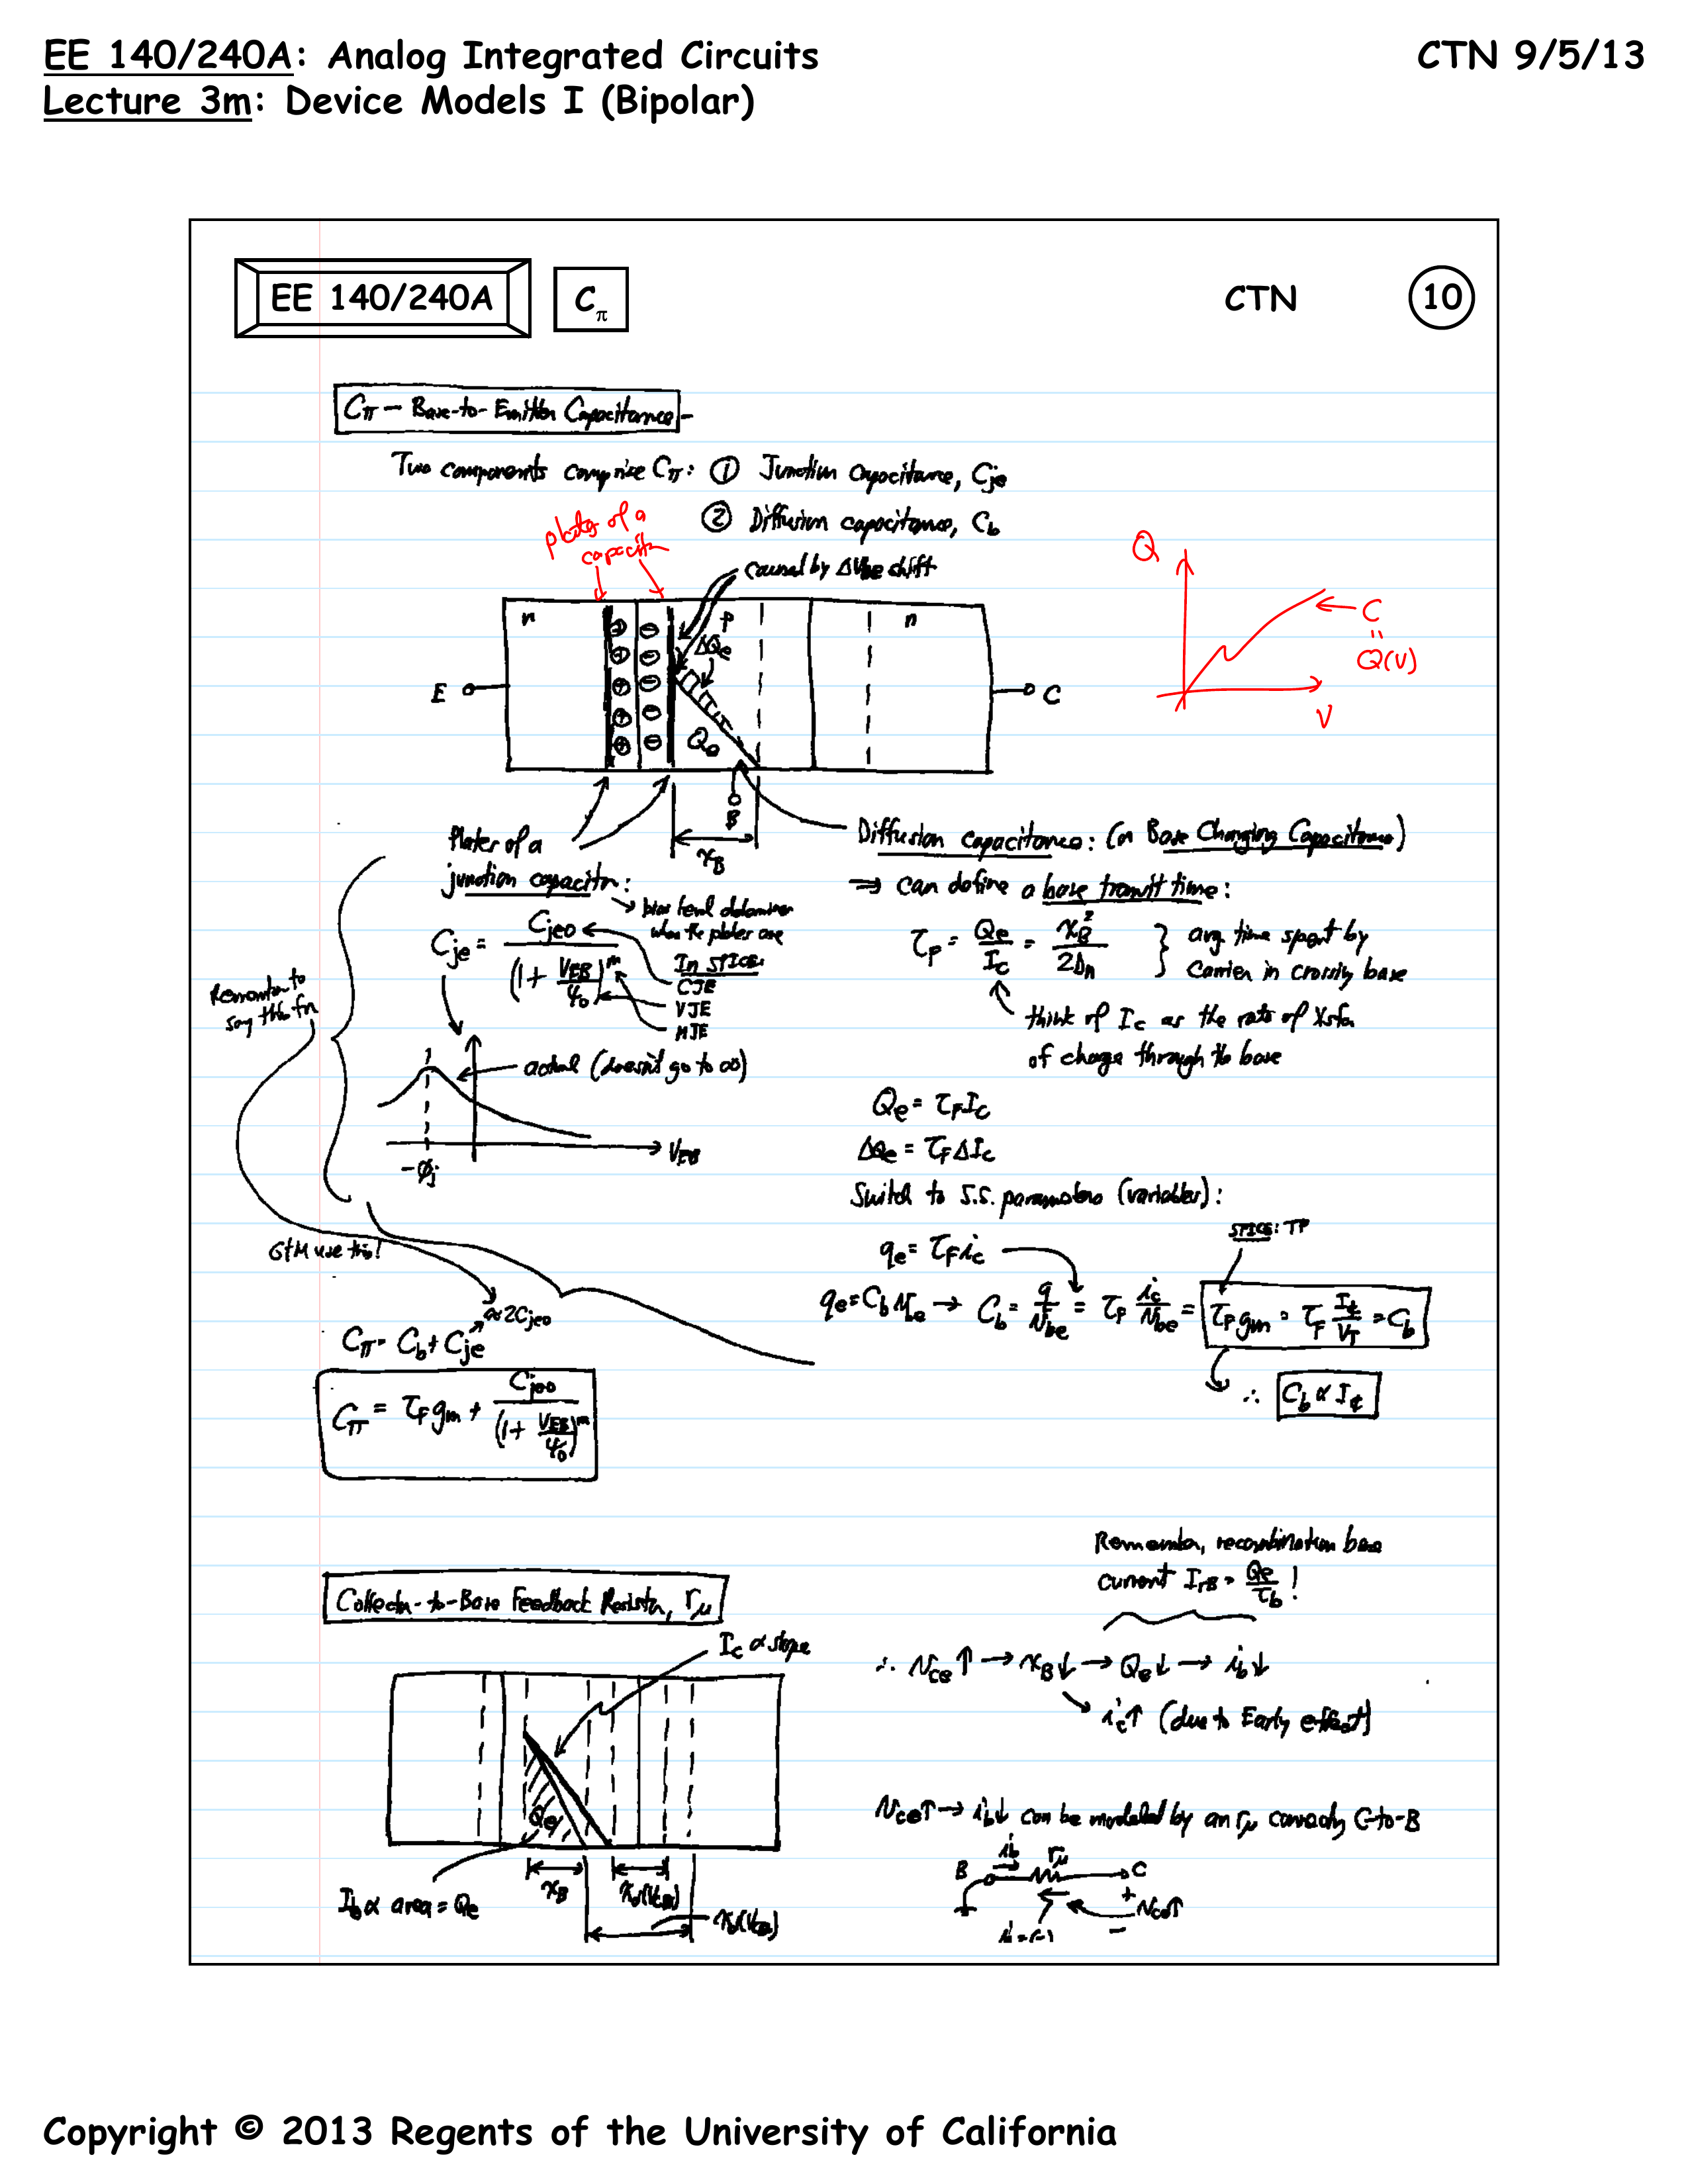 EE 140/240A: Analog Integrated Circuits CTN 9/5/13
Lecture 3m: Device Models I (Bipolar)
EE 140/240A Cπ CTN 10
Cπ – Base-to-Emitter Capacitance –
Two components comprise Cπ: ① Junction Capacitance, Cje
② Diffusion capacitance, Cb
plates of a
capacitor
caused by ΔVBE shift
n p n
ΔQe
Qe
E C
B
xB
Q
C
=
Q(V)
V
Plates of a
junction capacitor:
→ bias level determines
where the plates are
Cje = Cjeo / (1 + VEB/ψ0)^m
In SPICE:
CJE
VJE
MJE
Remember to
say this for
actual (doesn't go to ∞)
VEB
-φj
G+M use this!
≈ 2Cjeo
Cπ = Cb + Cje
Cπ = τF gm + Cjeo / (1 + VEB/ψ0)^m
Diffusion capacitance: (or Base Charging Capacitance)
⇒ can define a base transit time:
τF = Qe/IC = xB²/2Dn } avg. time spent by
carrier in crossing base
think of IC as the rate of Xsfer
of charge through the base
Qe = τF IC
ΔQe = τF ΔIC
Switch to S.S. parameters (variables):
SPICE: TF
qe = τF ic
qe = Cb vbe → Cb = q/vbe = τF ic/vbe = τF gm = τF IC/VT = Cb
∴ Cb ∝ IC
Collector-to-Base Feedback Resistor, rμ
Remember, recombination base
current IrB = Qe/τb !
IC ∝ slope
∴ vce ↑ → xB ↓ → Qe ↓ → ib ↓
ic ↑ (due to Early effect)
Qe
Ib ∝ area = Qe
xB
vce ↑ → ib ↓ can be modeled by an rμ connecting C-to-B
B ib rμ C
+
vce ↑
−
i = (-)
Copyright © 2013 Regents of the University of California